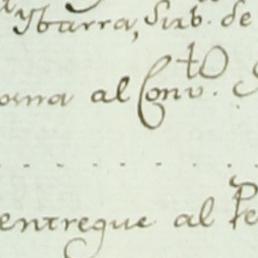 Ybarra, Sub. de
al Conv.to
entregue al Pe